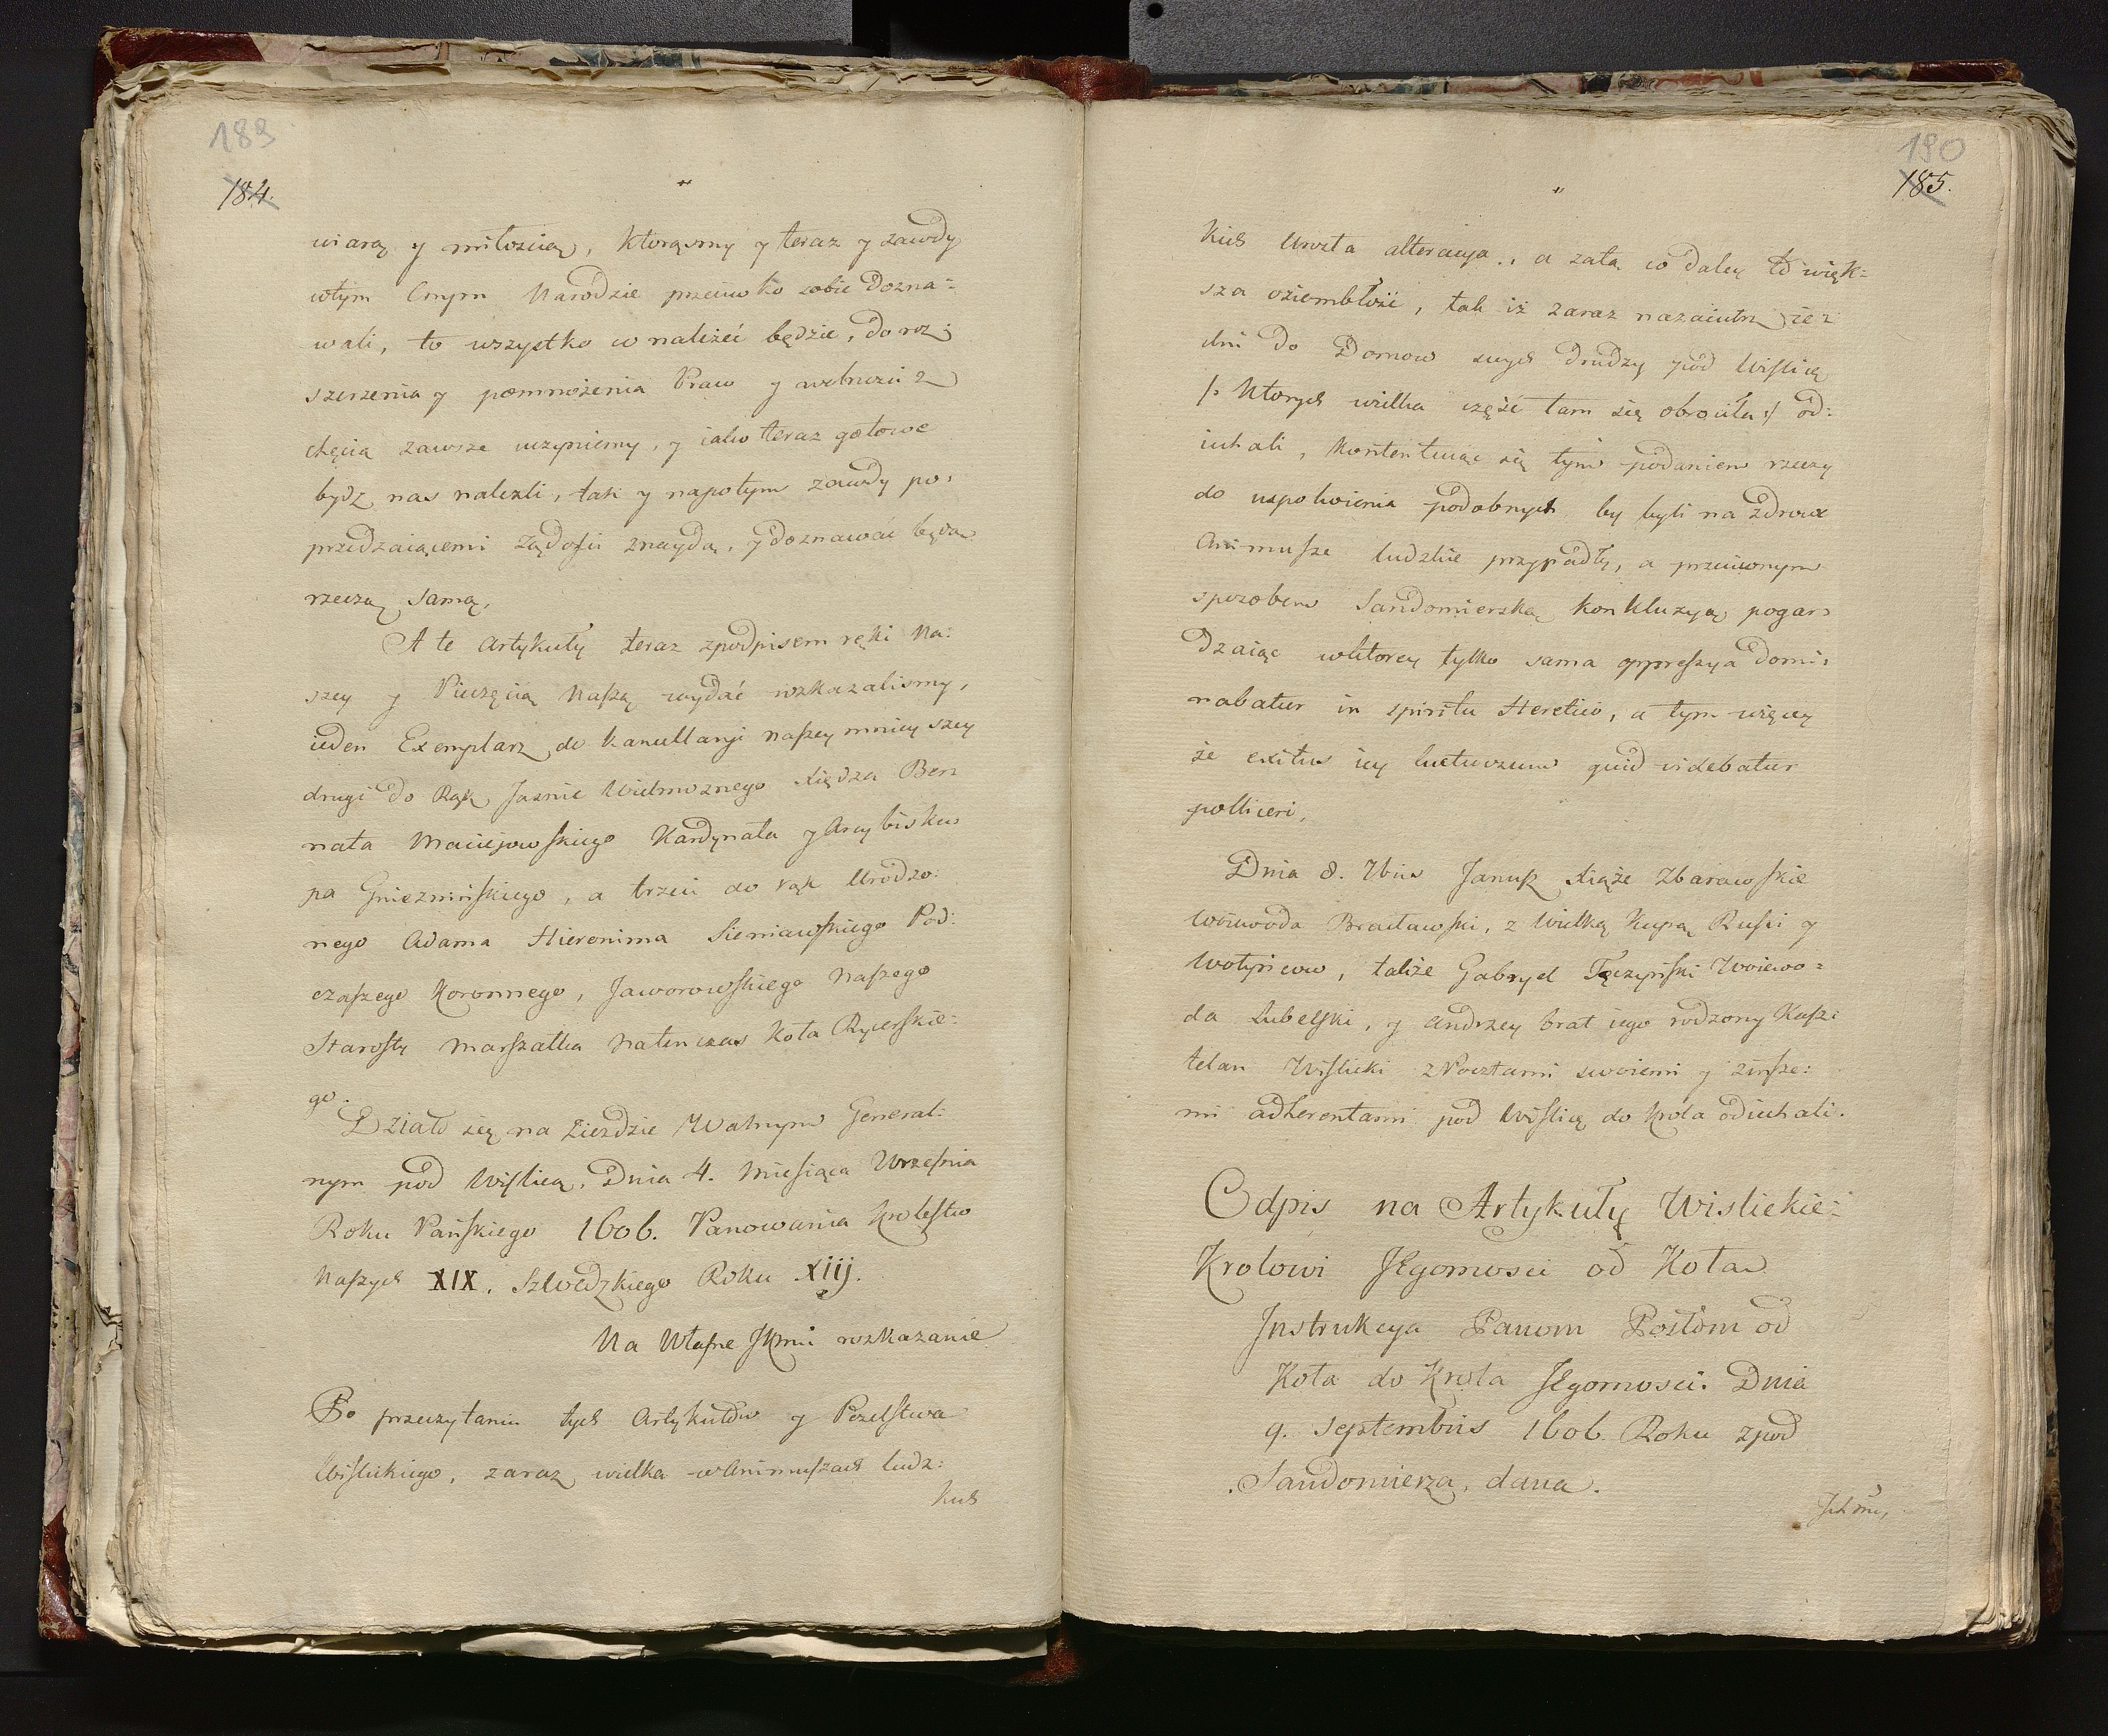 189
184.
wiarą y miłoscią, ktorąsmy y teraz y zawdy
wtym Cnym Narodzie przeciwko sobie Dozna=
wali, to wszystko co należeć będzie, do roz:
szerzenia y pomnożenia Praw y wolnosci z
chęcią zawsze uczyniemy, y iako teraz gotowe
bydz nas nalezli, tak y napotym zawdy po:
przedzaiącemi Żądości znaydą, y doznawać będą
rzeczą samą.
A te Artykuły teraz zpodpisem ręki Na:
szey y Pieczęcią Naszą wydać rozkazalismy,
ieden Exemplarz do Kancellaryi naszey mnieyszey
drugi do Rąk Jasnie Wielmoznego Xiędza Ber
nata Maciejowskiego Kardynała y Arcybisku:
pa Gnieznińskiego, a trzeci do rąk Urodzo:
nego Adama Hieronima Sieniawskiego Pod:
czaszego Koronnego, Jaworowskiego Naszego
Starosty Marszałka natenczas Koła Rycerskie:
go.
Działo się na Zieździe Walnym General:
nym pod Wislicą, Dnia 4. Miesiąca Wrzesnia
Roku Pańskiego 1606. Panowania Krolestw
Naszych XIX. Szwedzkiego Roku XIIJ.
Na Własne JKmci rozkazanie
Po przeczytaniu tych Artykułow y Poselstwa
Wislickiego, zaraz wielka w Animuszach ludz:
kich
190
185.
kich Urosła alteracya, a zatą co daley to więk=
sza oziembłość, tak iż zaraz nazaiutrz ie=
dni do Domow swych drudzy pod Wislicę
/: Ktorych wielka część tam się obrociła :/ od:
iechali, kontentuiąc się tym podaniem rzeczy
do uspokoienia podobnych by byli na zdrowe
Animusze ludzkie przypadły, a przeciwnym
sposobem Sandomierską konkluzyą pogar:
dzaiąc wktorey tylko sama oppressya domi:
nabatur in spiritu Heretico, a tym więcey
że exitus iey luctuosum quid videbatur
polliceri.
Dnia 8. 7bris Janusz Xiąże Zbarawskie
Woiewoda Bracławski, z wielką kupą Rusi y
Wołyńcow, także Gabryel Tęczyński Woiewo=
da Lubelski, y Andrzey brat iego rodzony Kasz:
telan Wislicki z Pocztami swoiemi y zinsze:
mi adherentami pod Wislicę do Krola odiechali.
Odpis na Artykuły Wislickie
Krolowi JEgomosci od Koła
Instrukcya Panom Posłom od
Koła do Krola JEgomosci. Dnia
9. Septembris 1606 Roku zpod
Sandomierza, dana.